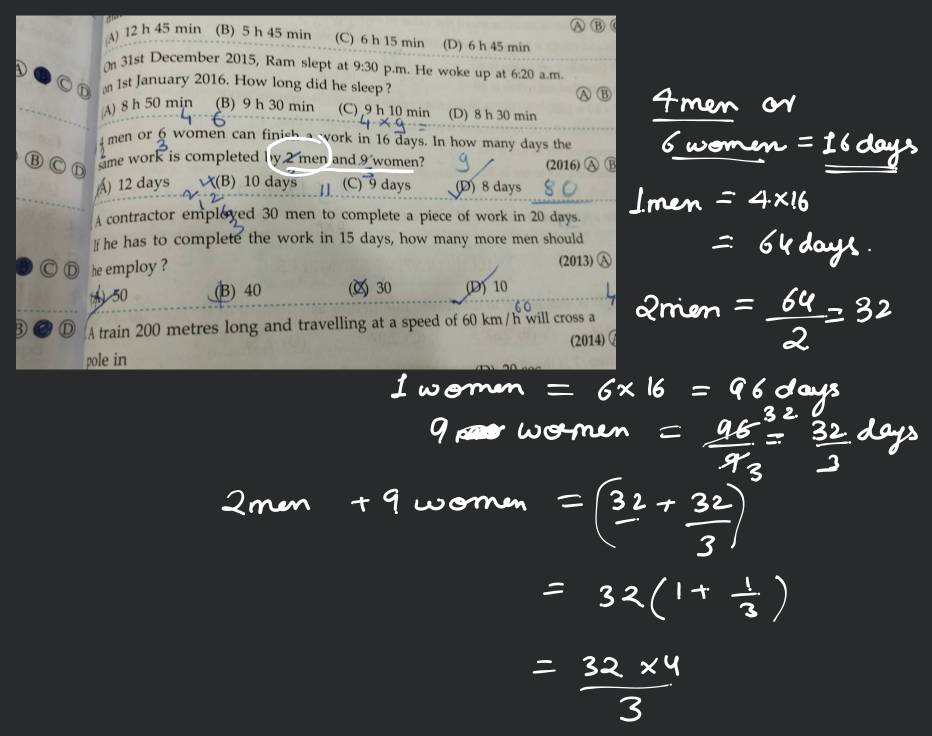 (A) 12 h 45 min (B) 5 h 45 min (C) 6 h 15 min (D) 6 h 45 min
On 31st December 2015, Ram slept at 9:30 p.m. He woke up at 6:20 a.m.
on 1st January 2016. How long did he sleep?
(A) 8 h 50 min (B) 9 h 30 min (C) 9 h 10 min (D) 8 h 30 min
4 6 4 × 9 =
4 men or 6 women can finish a work in 16 days. In how many days the
same work is completed by 2 men and 9 women? (2016)
(A) 12 days (B) 10 days (C) 9 days (D) 8 days 80
A contractor employed 30 men to complete a piece of work in 20 days.
If he has to complete the work in 15 days, how many more men should
he employ? (2013)
(A) 50 (B) 40 (C) 30 (D) 10
A train 200 metres long and travelling at a speed of 60 km/h will cross a
pole in (2014)
4men or
6 women = 16 days
1men = 4×16
= 64 days.
2men = 64/2 = 32
1 women = 6×16 = 96 days
9 women = 96/9 = 32/3 days
2men + 9 women = (32 + 32/3)
= 32(1 + 1/3)
= 32 ×4/3